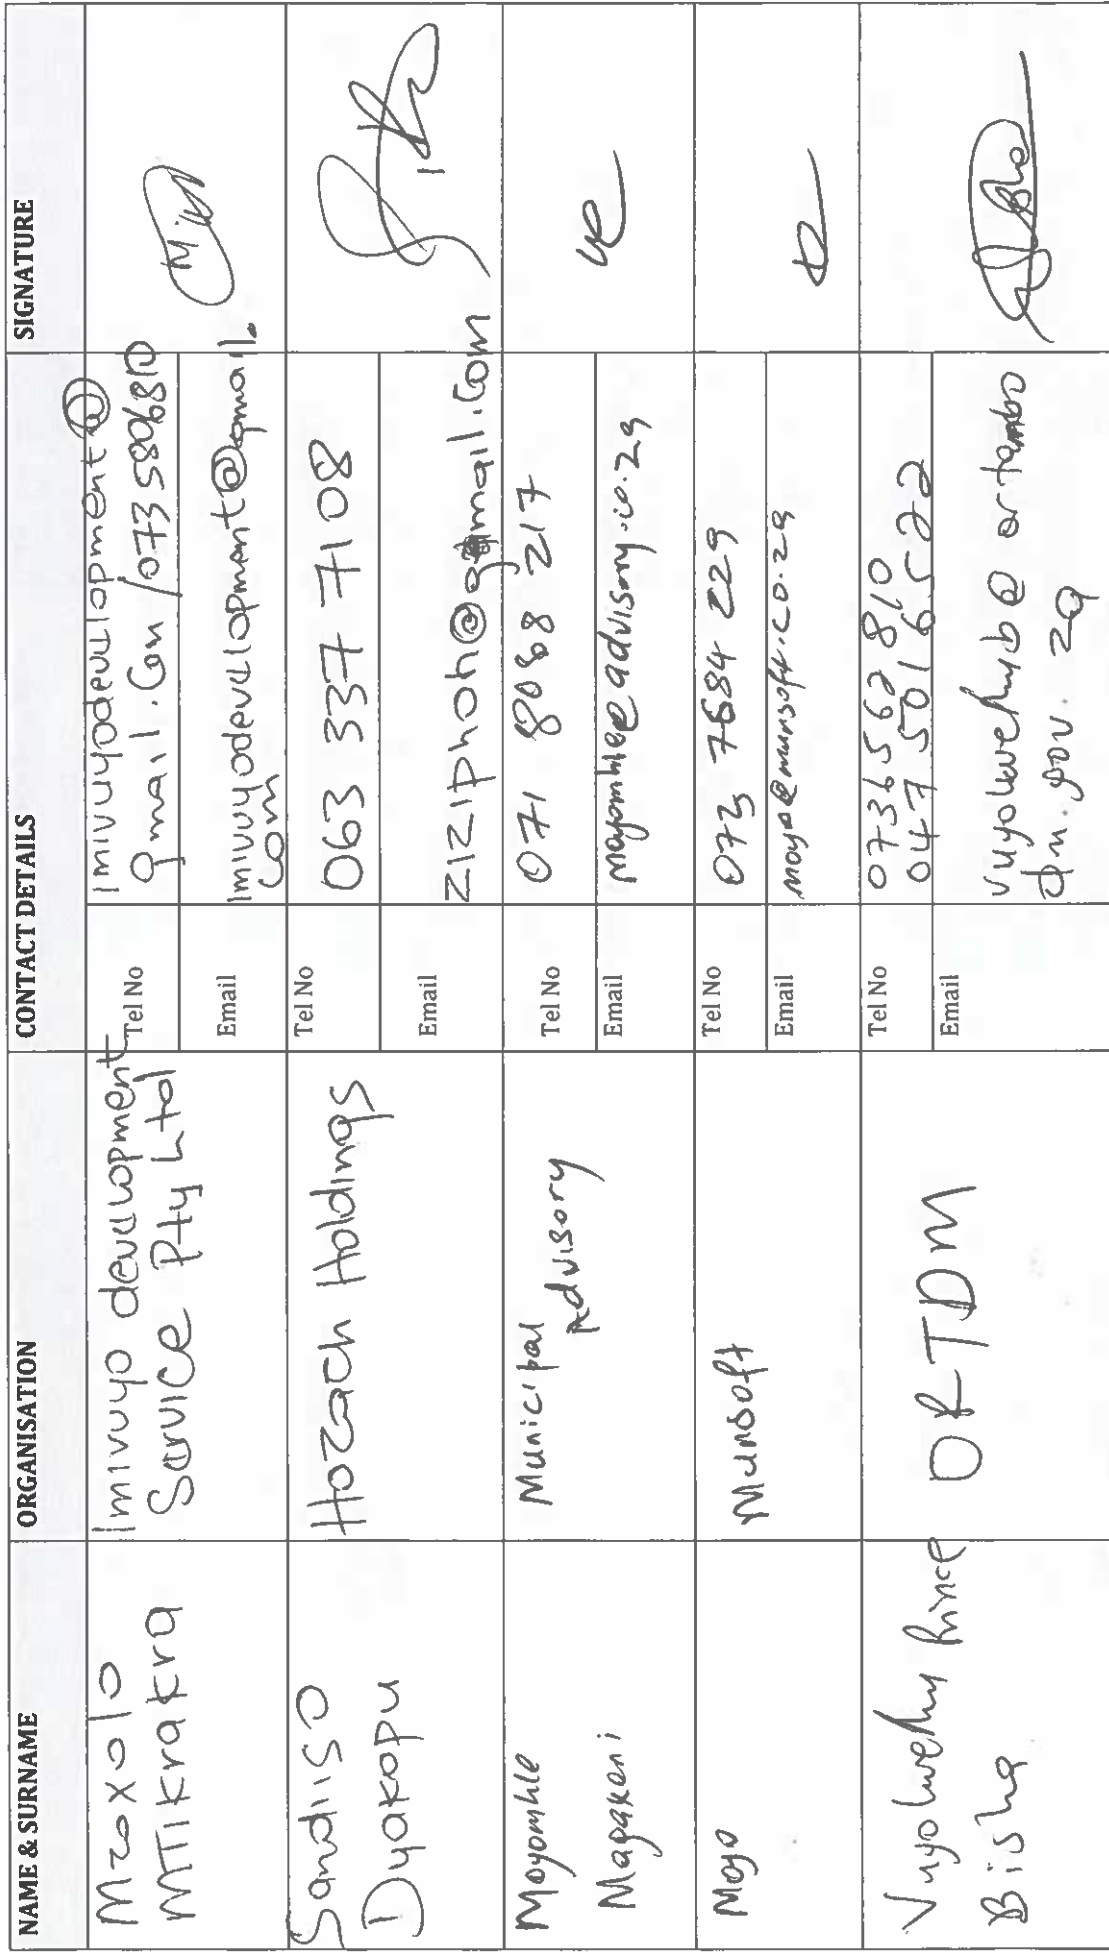 NAME & SURNAME
ORGANISATION
CONTACT DETAILS
SIGNATURE
Mzoxolo
MTIKrakra
Imivuyo development
Service Pty Ltd
Tel No
Imivuyodevelopment@
gmail.com /0735806810
Email
Imivuyodevelopment@gmail.
com
Sandiso
Dyakopu
Hozach Holdings
Tel No
063 337 7108
Email
ziziphoh@gmail.com
Moyomhle
Magakeni
Municipal
Advisory
Tel No
071 8068 217
Email
Moyo
Munsoft
Tel No
073 7684 229
Email
moyo@munsoft.co.za
Prince
Bisha
ORTDM
Tel No
0736562810
047 501 6522
Email
@ortambo
dm.gov.za